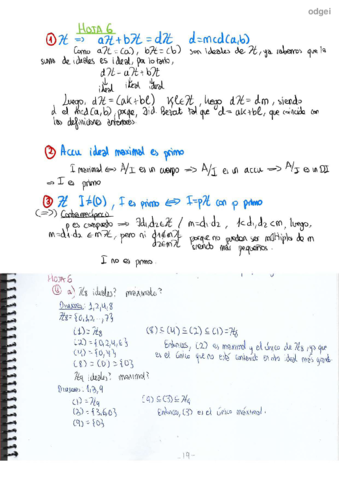 odgei
HOJA 6
① ℤ ⟹ aℤ + bℤ = dℤ   d = mcd(a,b)
Como aℤ = (a), bℤ = (b) son ideales de ℤ, ya sabemos que la
suma de ideales es ideal, por lo tanto,
dℤ = aℤ + bℤ
ideal ideal ideal
Luego, dℤ = (ak + bl) k,l∈ℤ, luego dℤ = dm, siendo
d el mcd(a,b), pues, Id. Bezout tal que d = ak + bl, que coincide con
las definiciones anteriores.
② Accu ideal maximal es primo
I maximal ⟺ A/I es un cuerpo ⟹ A/I es un accu ⟹ A/I es un DI
⟹ I es primo
③ ℤ I≠(0), I es primo ⟺ I=pℤ con p primo
(⟹) Contrarrecíproco
p es compuesto ⟹ ∃d₁,d₂∈ℤ / m = d₁d₂, 1<d₁,d₂<m, luego,
m = d₁d₂ ∈ mℤ, pero ni d₁∈mℤ ni d₂∈mℤ porque no pueden ser múltiplo de m siendo más pequeños.
I no es primo.
HOJA 6
④ a) ℤ₈ ideales? maximales?
Divisores: 1,2,4,8
ℤ₈ = {0,1,2,...,7}
(1) = ℤ₈   (8) ⊆ (4) ⊆ (2) ⊆ (1) = ℤ₈
(2) = {0,2,4,6}   Entonces, (2) es maximal y el único de ℤ₈, ya que
(4) = {0,4}   es el único que no está contenido en otro ideal más grande
(8) = (0) = {0}
ℤ₉ ideales? maximal?
Divisores: 1,3,9
(1) = ℤ₉   (9) ⊆ (3) ⊆ ℤ₉
(3) = {3,6,0}   Entonces, (3) es el único maximal.
(9) = {0}
-19-